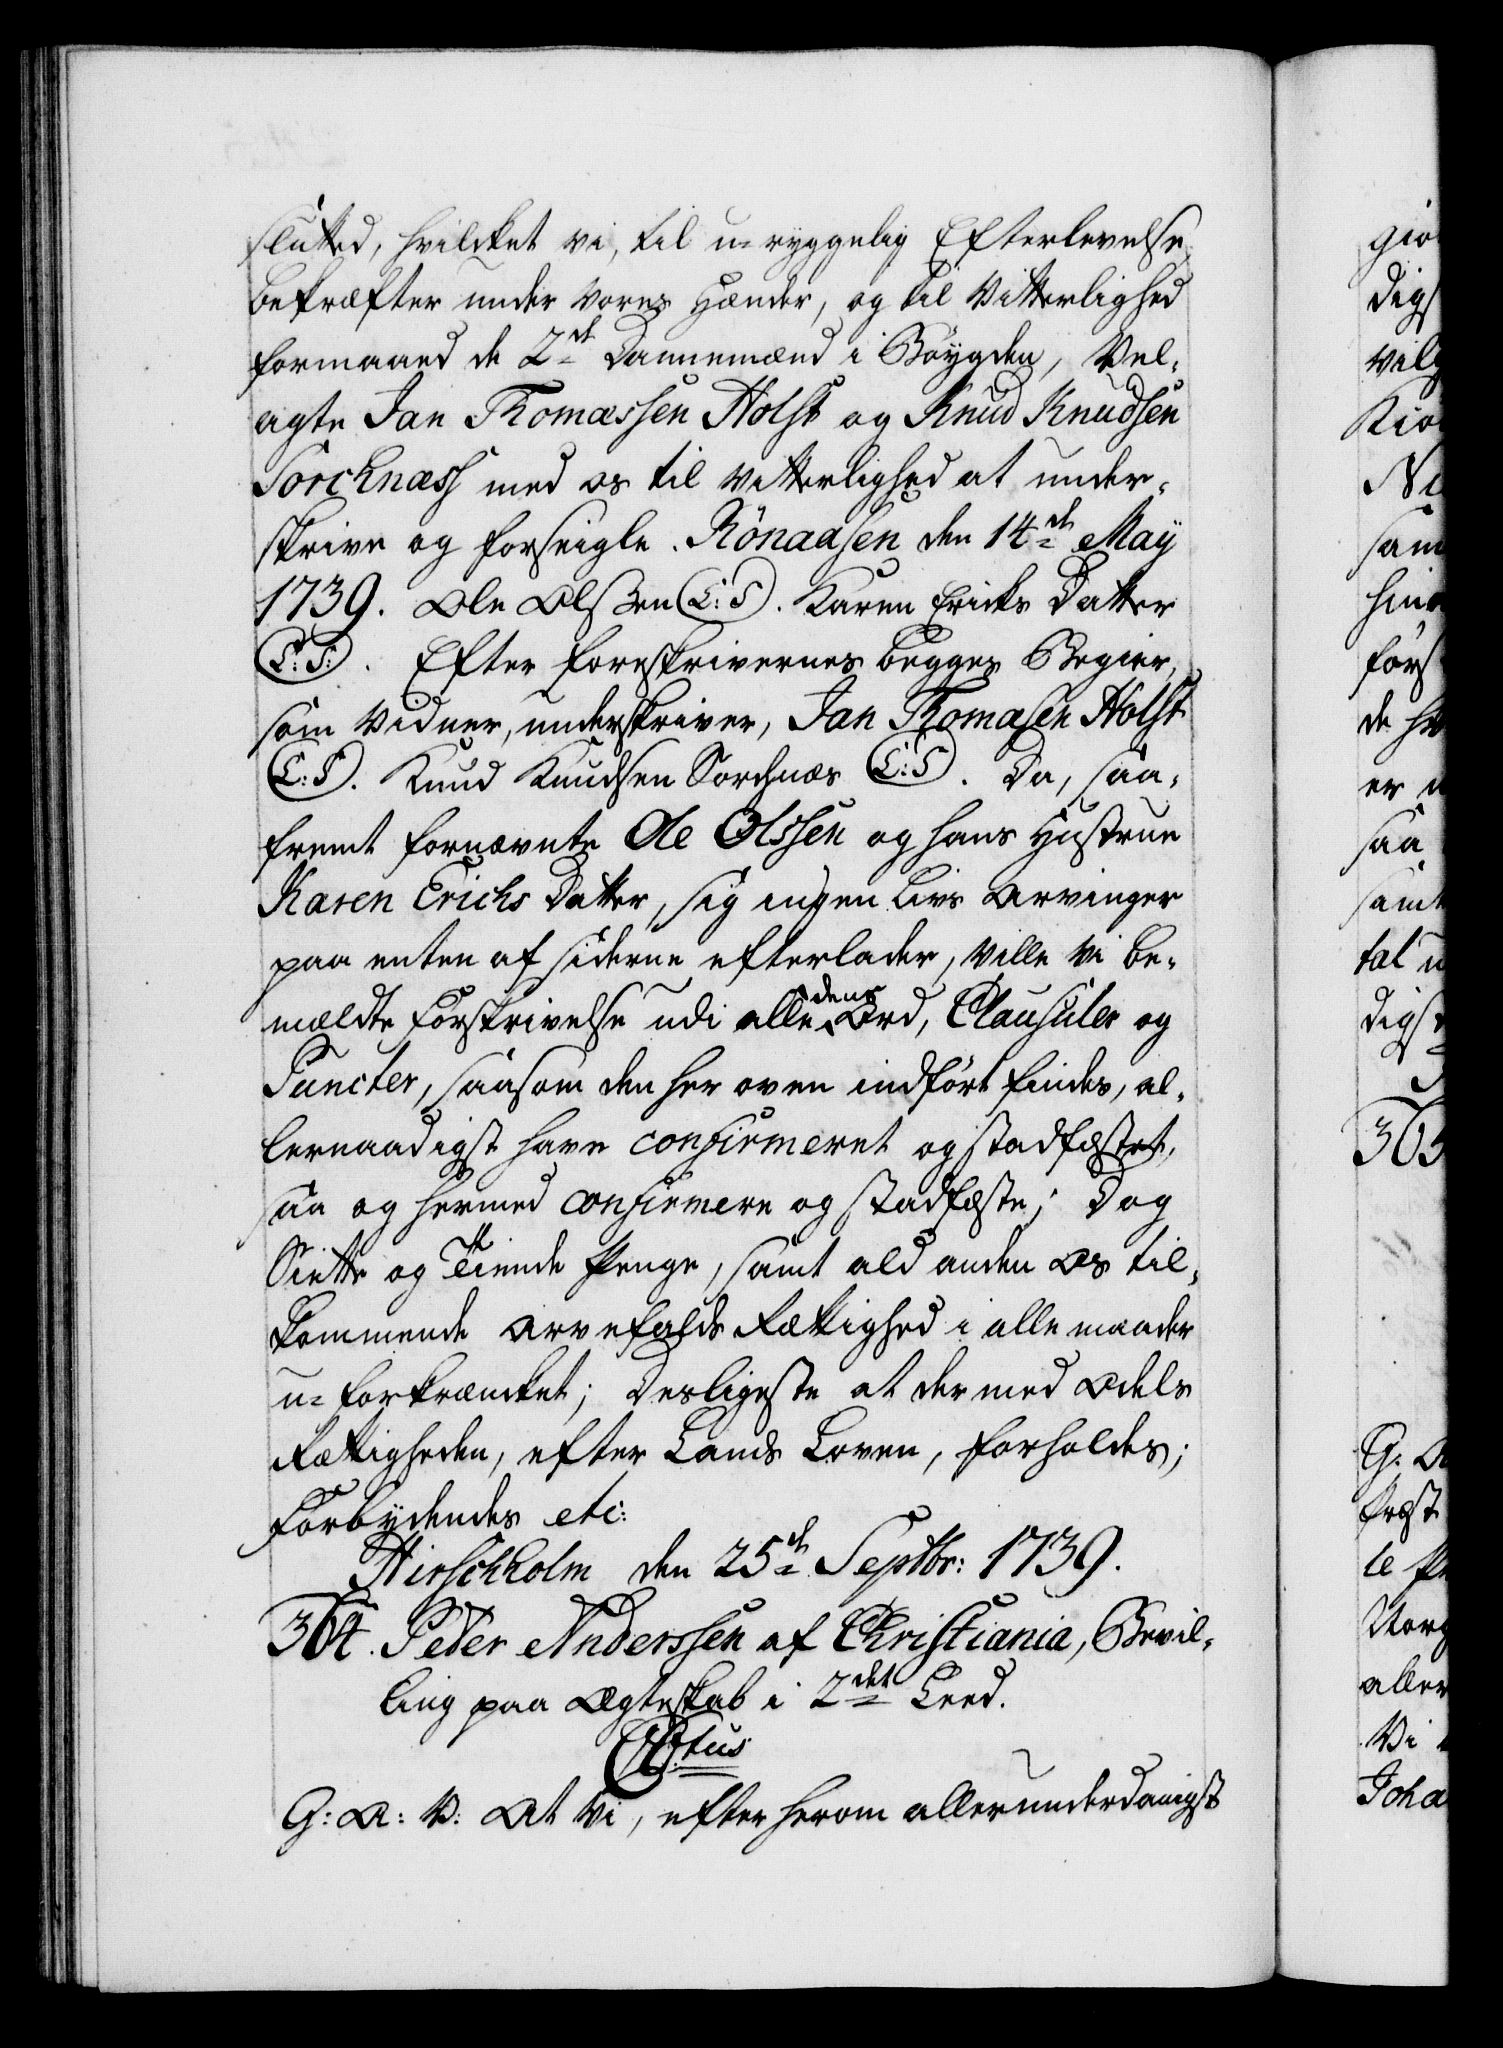 slutted, hvilcket vi, til u-ryggelig Efterlevelse,
bekræfter under vores Hænder, og til Vitterlighed
formaaed de 2de Dannemænd i Böygden, Vel-
agte Jan Thomæssen Holst og Knud Knudsen
Sorchnæss med os til Vitterlighed at under-
skrive og forseigle. Rönaasen den 14de May
1739. Ole Olssen (L: S). Karen Ericks Datter
(L: S:). Efter foreskrivernes begges Begier,
som Vidner, underskriver, Jan Thomasen Holst
(L: S). Knud Knudsen Sorchnæs (L: S). Da, saa-
fremt fornævnte Ole Olssen og hans Hustrue
Karen Erichs Datter, sig ingen Livs Arvinger
paa enten af siderne efterlader, ville vi be-
mældte Forskrivelse udi alle dens Ord, Clausuler og
Puncter, saasom den her oven indført findes, al-
lernaadigst have confirmeret og stadfæstet,
saa og hermed confirmere og stadfæste; Dog
Siette og Tiende Penge, samt ald anden Os til-
kommende Arvefalds Rættighed i alle maader
u-forkræncket; Desligeste at der med Odels
Rættigheden, efter Lands Loven, forholdes;
Forbydendes etc:
Hirschholm den 25de Septbr: 1739.
364. Peder Anderssen af Christiania, Bevil-
ling paa Ægteskab i 2det Leed.
C 6tus
G: A: V: At Vi, efter herom allerunderdanigst